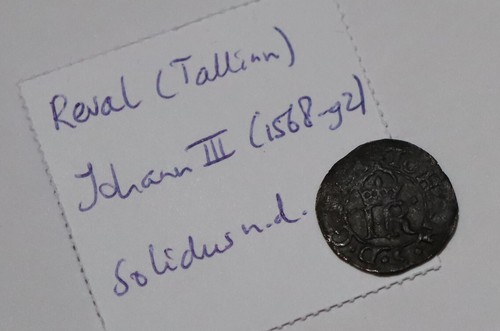 Reval (Tallinn)
Johann III (1568-92)
Solidus n.d.
IR